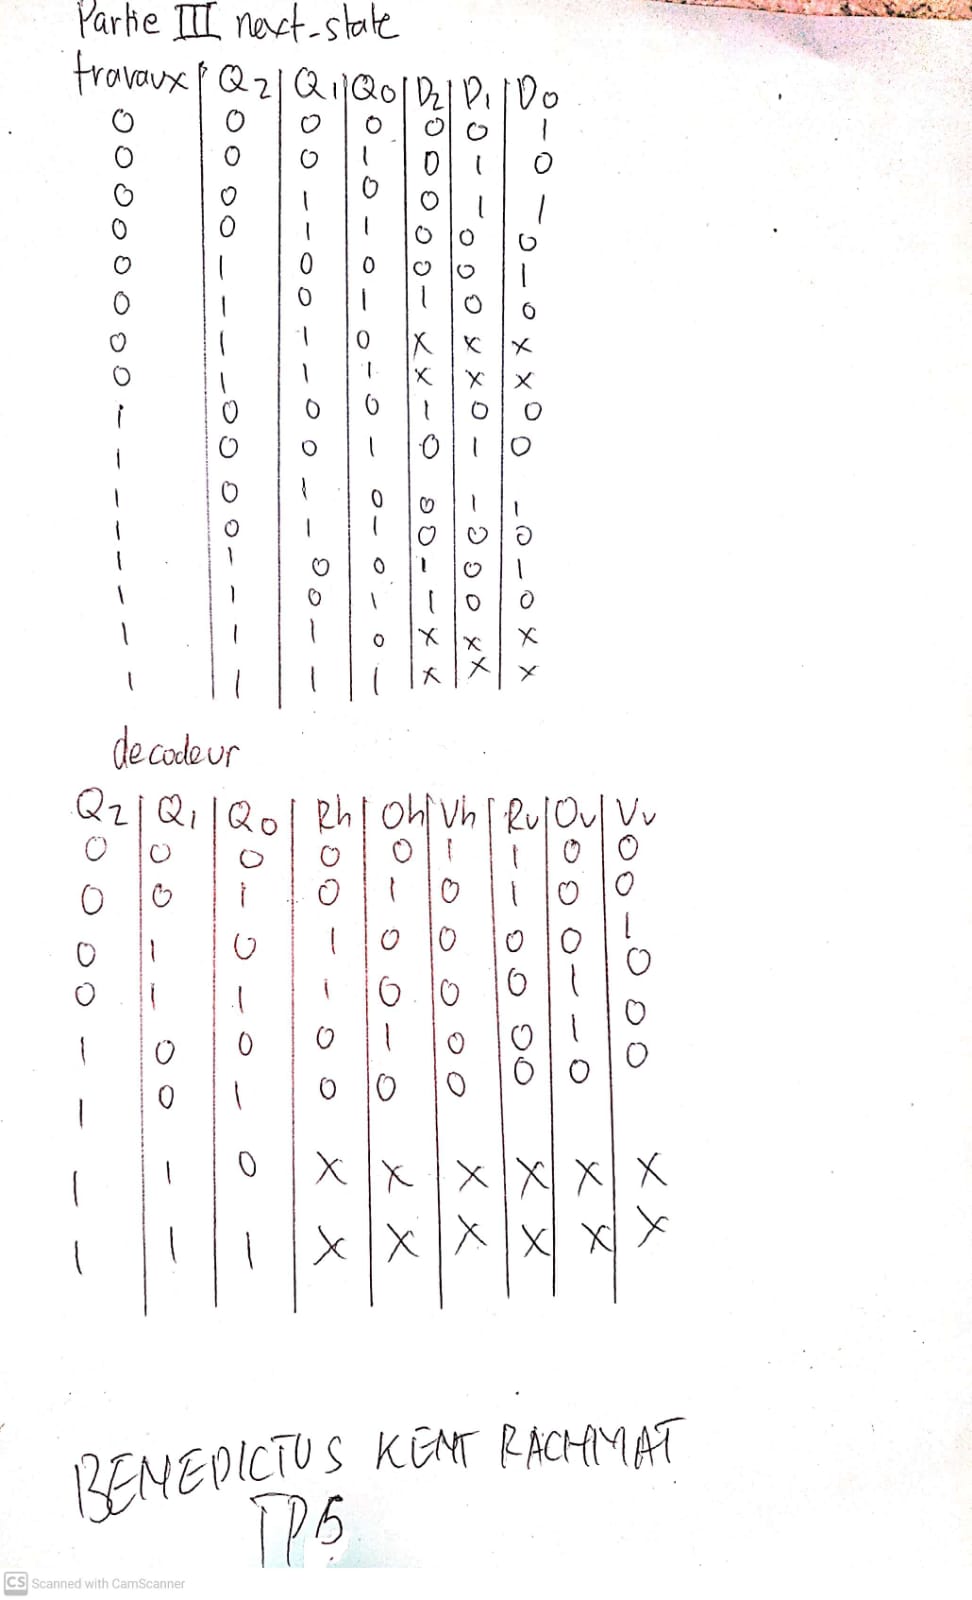 Partie III next-state
travaux | Q2 | Q1 | Q0 | D2 | D1 | D0
0 | 0 | 0 | 0 | 0 | 0 | 1
0 | 0 | 0 | 1 | 0 | 1 | 0
0 | 0 | 1 | 0 | 0 | 1 | 1
0 | 0 | 1 | 1 | 0 | 0 | 0
0 | 1 | 0 | 0 | 0 | 0 | 1
0 | 1 | 0 | 1 | 1 | 0 | 0
0 | 1 | 1 | 0 | X | X | X
0 | 1 | 1 | 1 | X | X | X
1 | 0 | 0 | 0 | 1 | 0 | 0
1 | 0 | 0 | 1 | 0 | 1 | 0
1 | 0 | 1 | 0 | 0 | 1 | 1
1 | 0 | 1 | 1 | 0 | 0 | 0
1 | 1 | 0 | 0 | 1 | 0 | 1
1 | 1 | 0 | 1 | 1 | 0 | 0
1 | 1 | 1 | 0 | X | X | X
1 | 1 | 1 | 1 | X | X | X
decodeur
Q2 | Q1 | Q0 | Rh | Oh | Vh | Rv | Ov | Vv
0 | 0 | 0 | 0 | 0 | 1 | 1 | 0 | 0
0 | 0 | 1 | 0 | 1 | 0 | 1 | 0 | 0
0 | 1 | 0 | 1 | 0 | 0 | 0 | 0 | 1
0 | 1 | 1 | 1 | 0 | 0 | 0 | 1 | 0
1 | 0 | 0 | 0 | 1 | 0 | 0 | 1 | 0
1 | 0 | 1 | 0 | 0 | 0 | 0 | 0 | 0
1 | 1 | 0 | X | X | X | X | X | X
1 | 1 | 1 | X | X | X | X | X | X
BENEDICTUS KENT RACHMAT
TP5
CS Scanned with CamScanner